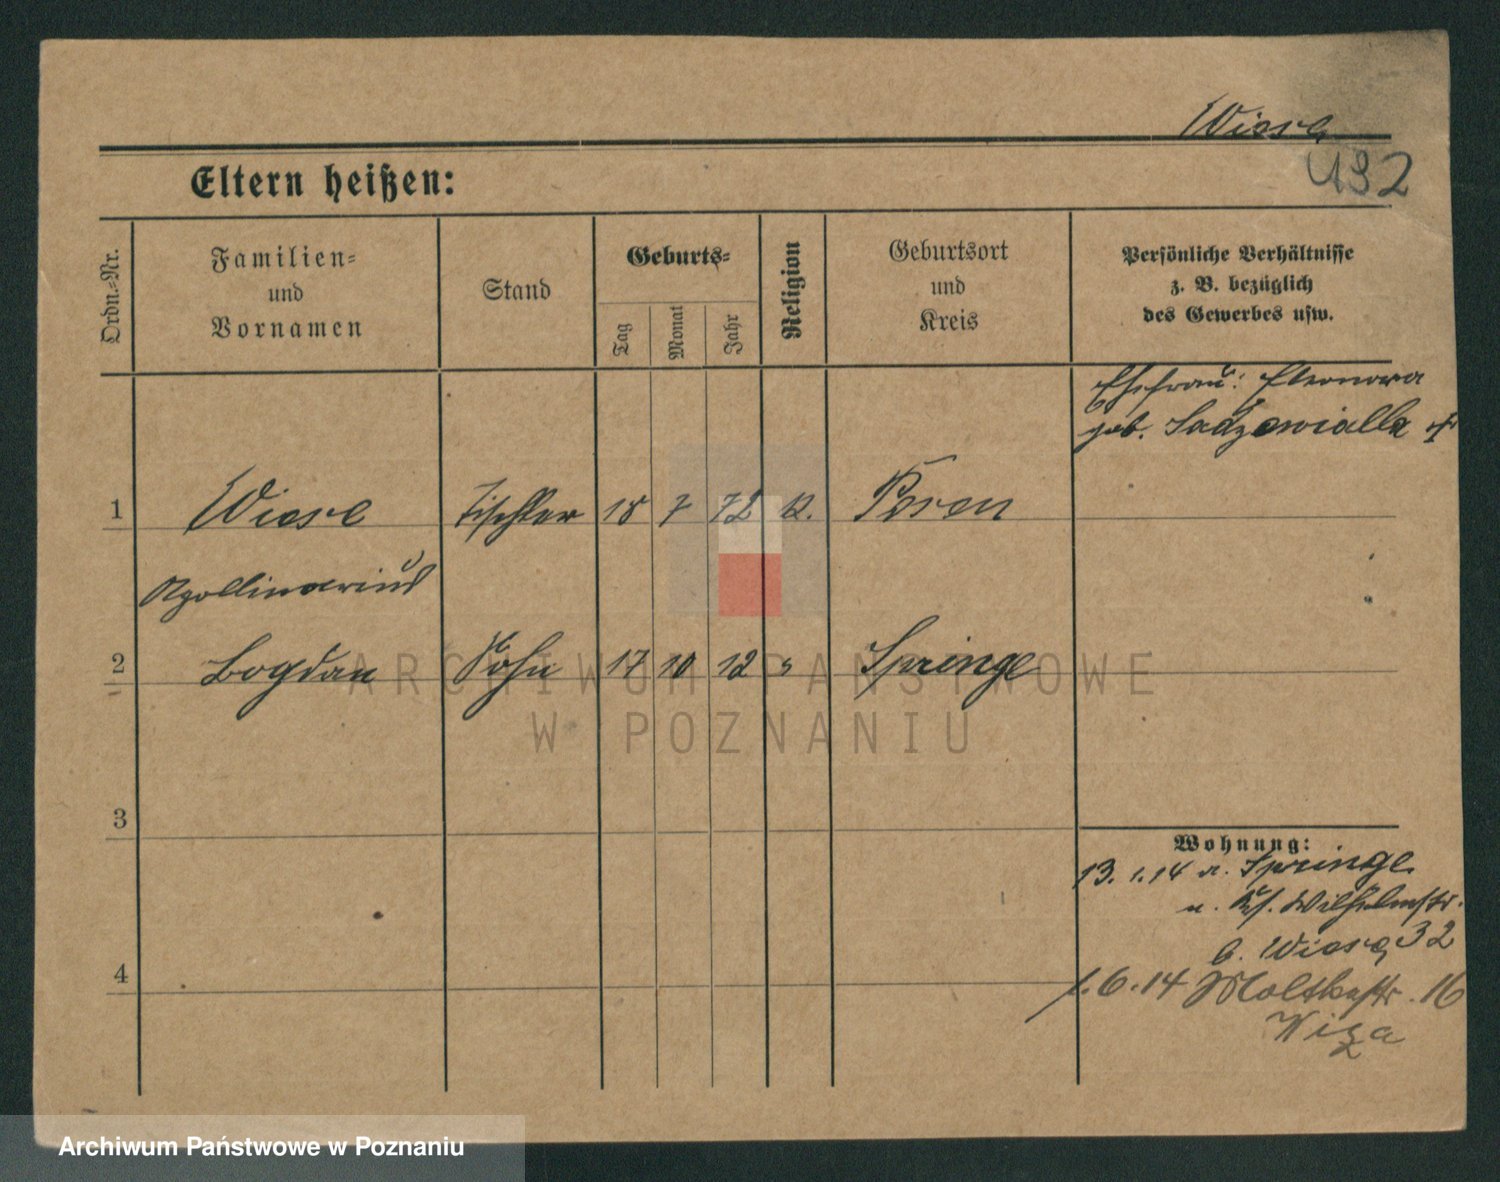 Wiese
432
Eltern heißen:
Ordn.-Nr.
Familien-
und
Vornamen
Stand
Geburts-
Tag
Monat
Jahr
Religion
Geburtsort
und
Kreis
Persönliche Verhältnisse
z. B. bezüglich
des Gewerbes usw.
Ehefrau: Eleonora
geb. Sadzewialla
1 Wiese Tischler 18 7 72 k. Posen
Apollinarius
2 Bogdan Sohn 17 10 12 " Springe
3
4
Wohnung:
13. 1. 14 a. Springe
n. Wilhelmstr.
b. Wiese 32
1. 6. 14 Moltkestr. 16
Wiza
ARCHIWUM PAŃSTWOWE
W POZNANIU
Archiwum Państwowe w Poznaniu